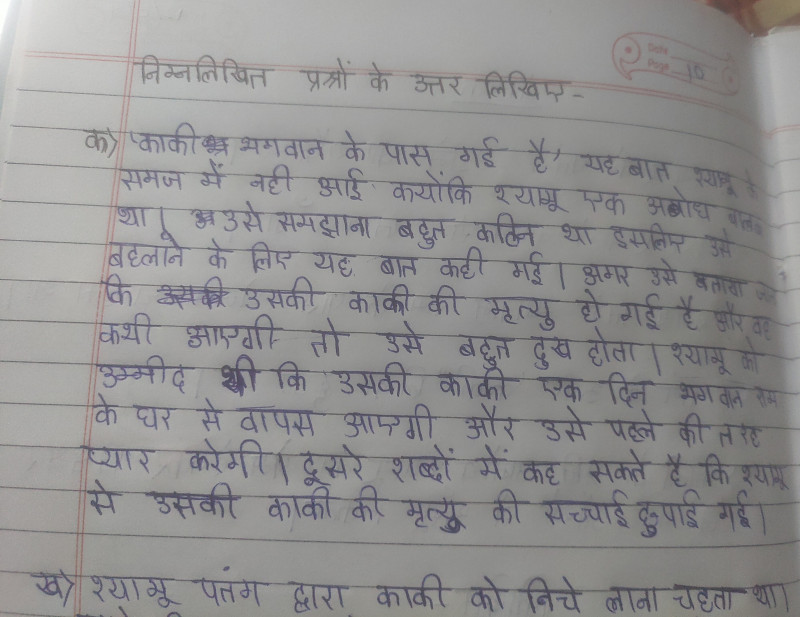 Date
Page 10
निम्नलिखित प्रश्नों के उत्तर लिखिए -
क) 'काकी भगवान के पास गई है' यह बात श्यामू के
समज में नही आई क्योंकि श्यामू एक अबोध बालक
था। उसे समझाना बहुत कठिन था इसलिए उसे
बहलाने के लिए यह बात कही गई। अगर उसे बताया
कि उसकी काकी की मृत्यु हो गई है और वह
कभी आएगी तो उसे बहुत दुख होता। श्यामू को
उम्मीद थी कि उसकी काकी एक दिन भगवान राम
के घर से वापस आएगी और उसे पहले की तरह
प्यार करेगी। दूसरे शब्दों में कह सकते है कि श्यामू
से उसकी काकी की मृत्यु की सच्चाई छुपाई गई।
ख) श्यामू पतंग द्वारा काकी को निचे लाना चहता था।